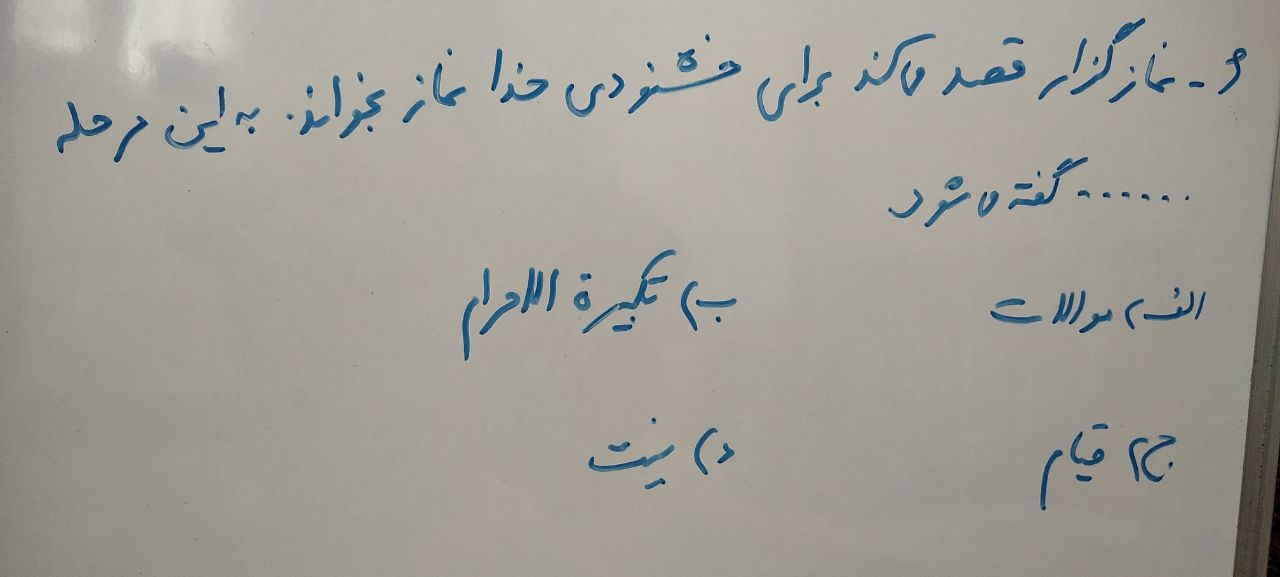 ۶- نماز گزار قصد می‌کند برای خشنودی خدا نماز بخواند. به این مرحله
...... گفته می‌شود
الف) موالات ب) تکبیرة الاحرام
ج) قیام د) نیت